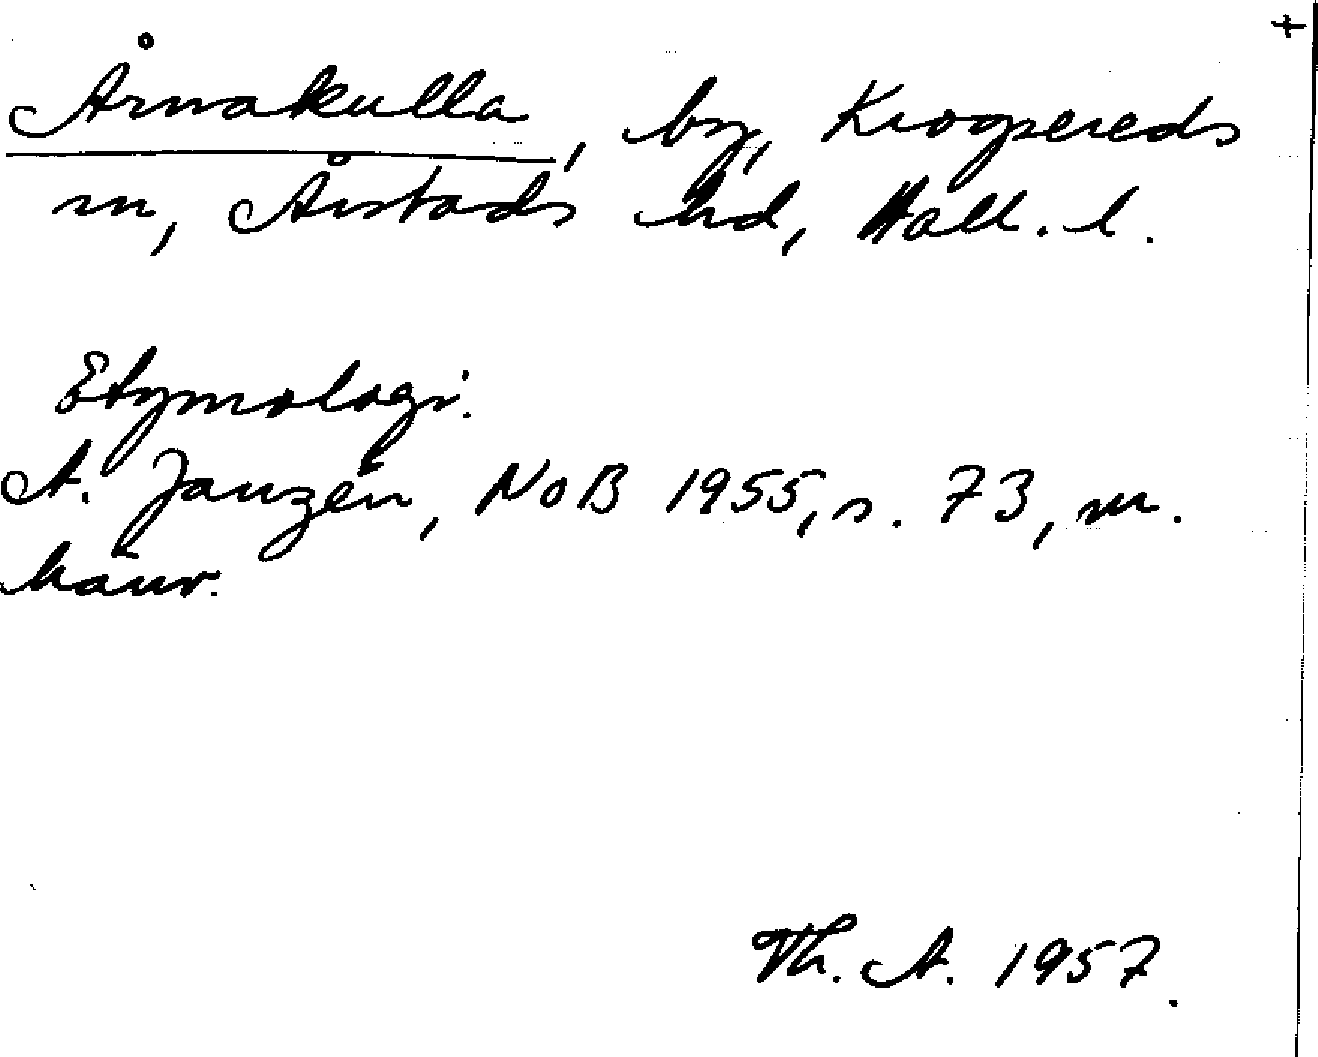 Årnakulla, by, Krogsereds
sn, Årstads hd, Hall. l.
Etymologi.
A. Janzén, NoB 1955, s. 73, m.
hänv.
Th. A. 1957.